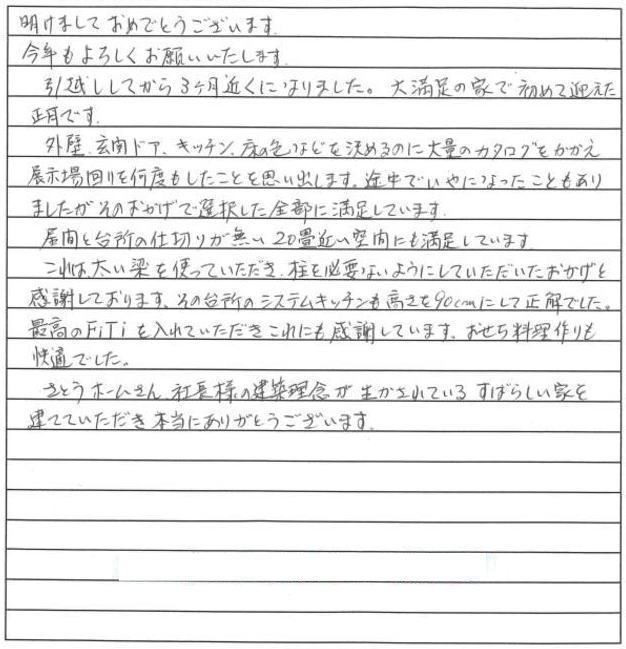 明けましておめでとうございます.
今年もよろしくお願いいたします.
引越ししてから3ヶ月近くになりました。大満足の家で初めて迎えた
正月です.
外壁.玄関ドア.キッチン.床の色などを決めるのに大量のカタログをかかえ
展示場回りを何度もしたことを思い出します.途中でいやになったこともあり
ましたがそのおかげで選択した全部に満足しています.
居間と台所の仕切りが無い20畳近い空間にも満足しています.
これは.太い梁を使っていただき.柱を必要ないようにしていただいたおかげと
感謝しております.その台所のシステムキッチンも高さを90cmにして正解でした。
最高のFiTiを入れていただきこれにも感謝しています.おせち料理作りも
快適でした。
さとうホームさん.社長様の建築理念が生かされているすばらしい家を
建てていただき本当にありがとうございます.